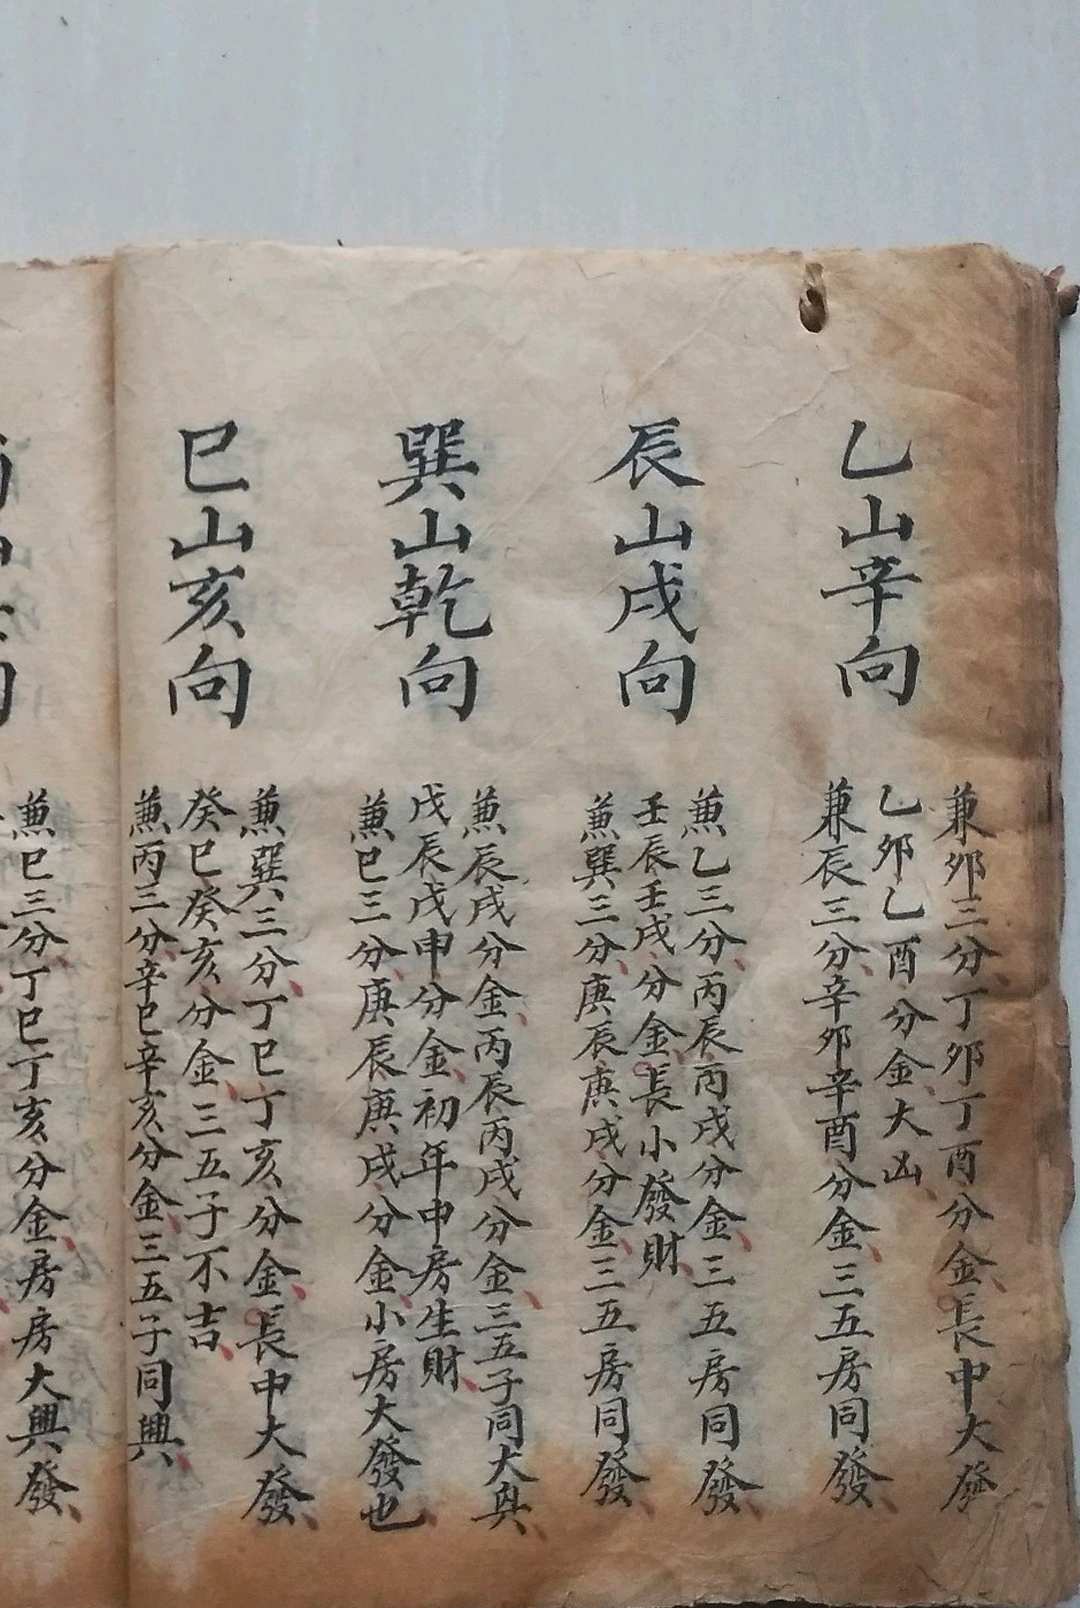 乙山辛向
兼卯三分、丁卯丁酉分金、長中大發
乙卯乙酉分金、大凶、
兼辰三分、辛卯辛酉分金、三五房同發、
辰山戌向
兼乙三分、丙辰丙戌分金、三五房同發、
壬辰壬戌分金、長小發財、
兼巽三分、庚辰庚戌分金、三五房同發、
巽山乾向
兼辰戌分金、丙辰丙戌分金、三五子同大興、
戊辰戊申分金、初年中房生財、
兼巳三分、庚辰庚戌分金、小房大發也
巳山亥向
兼巽三分、丁巳丁亥分金、長中大發、
癸巳癸亥分金、三五子不吉、
兼丙三分、辛巳辛亥分金、三五子同興、
向
兼巳三分、丁巳丁亥分金、房房大興發、